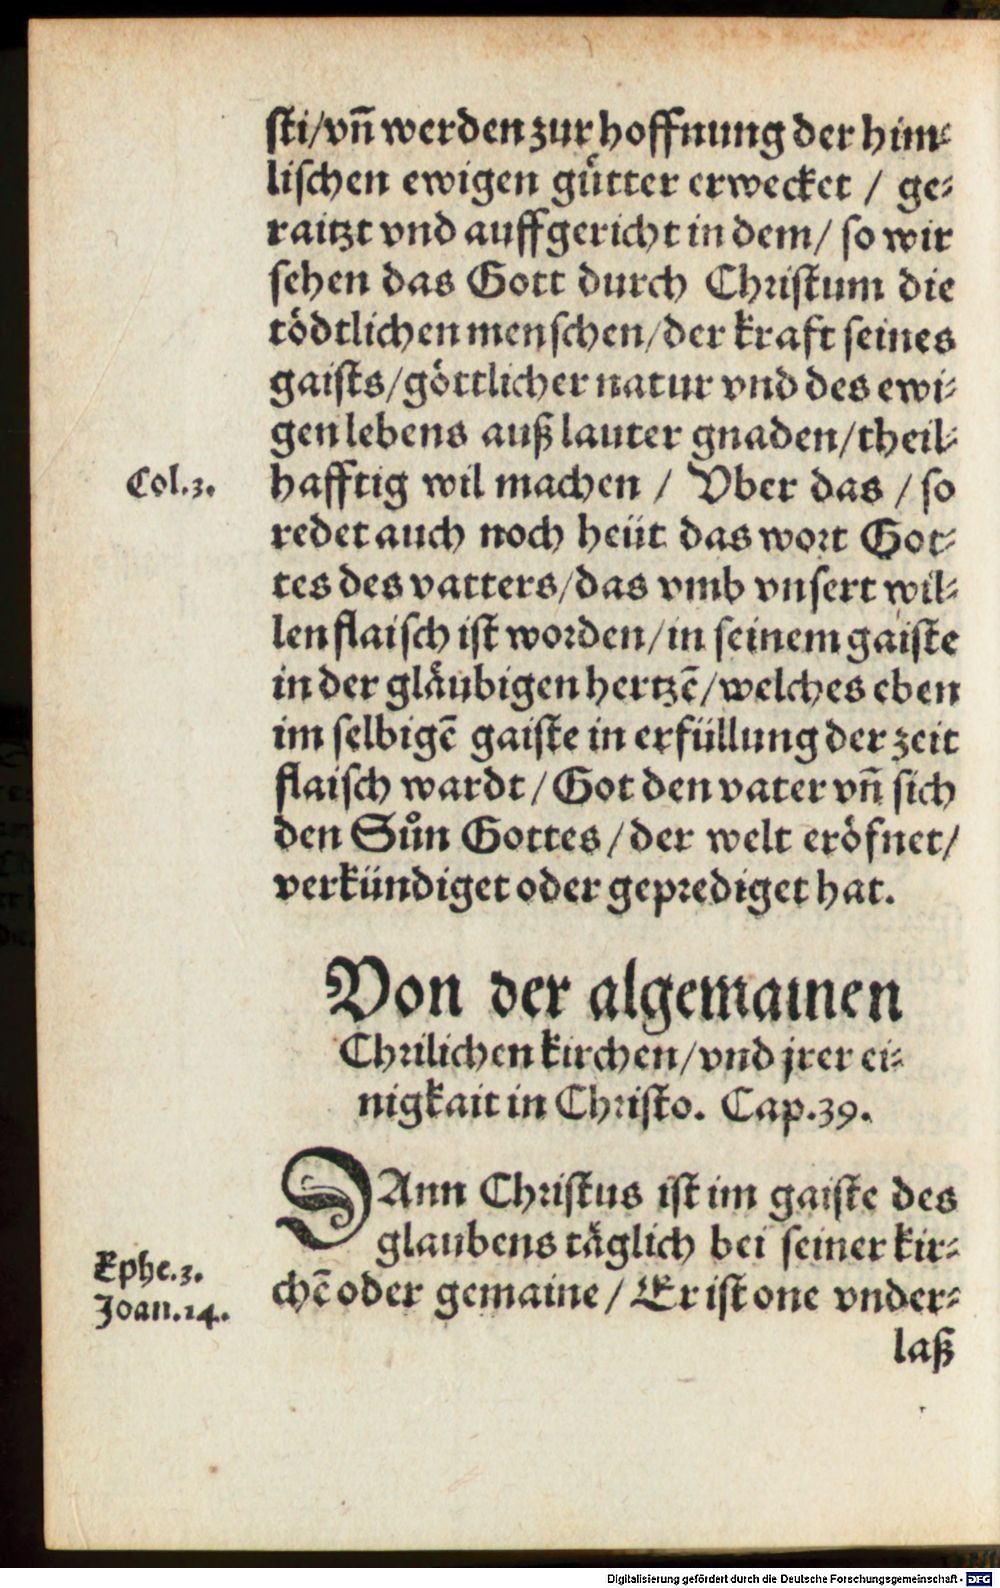 sti/vñ werden zur hoffnung der him⸗
lischen ewigen guͤtter erwecket / ge⸗
raitzt vnd auffgericht in dem/ so wir
sehen das Gott durch Christum die
toͤdtlichen menschen/der kraft seines
gaists/goͤttlicher natur vnd des ewi⸗
gen lebens auß lauter gnaden/theil⸗
Col.3. hafftig wil machen / Vber das / so
redet auch noch heüt das wort Got⸗
tes des vatters/das vmb vnsert wil⸗
len flaisch ist worden/in seinem gaiste
in der glaͤubigen hertzē/welches eben
im selbigē gaiste in erfüllung der zeit
flaisch wardt/Got den vater vñ sich
den Suͦn Gottes/der welt eroͤfnet/
verkündiget oder geprediget hat.
Von der algemainen
Chrilichen kirchen/vnd jrer ei⸗
nigkait in Christo. Cap.39.
DAnn Christus ist im gaiste des
glaubens taͤglich bei seiner kir⸗
Ephe.3.
chē oder gemaine/ Er ist one vnder⸗
Joan.14.
laß
Digitalisierung gefördert durch die Deutsche Forschungsgemeinschaft - DFG